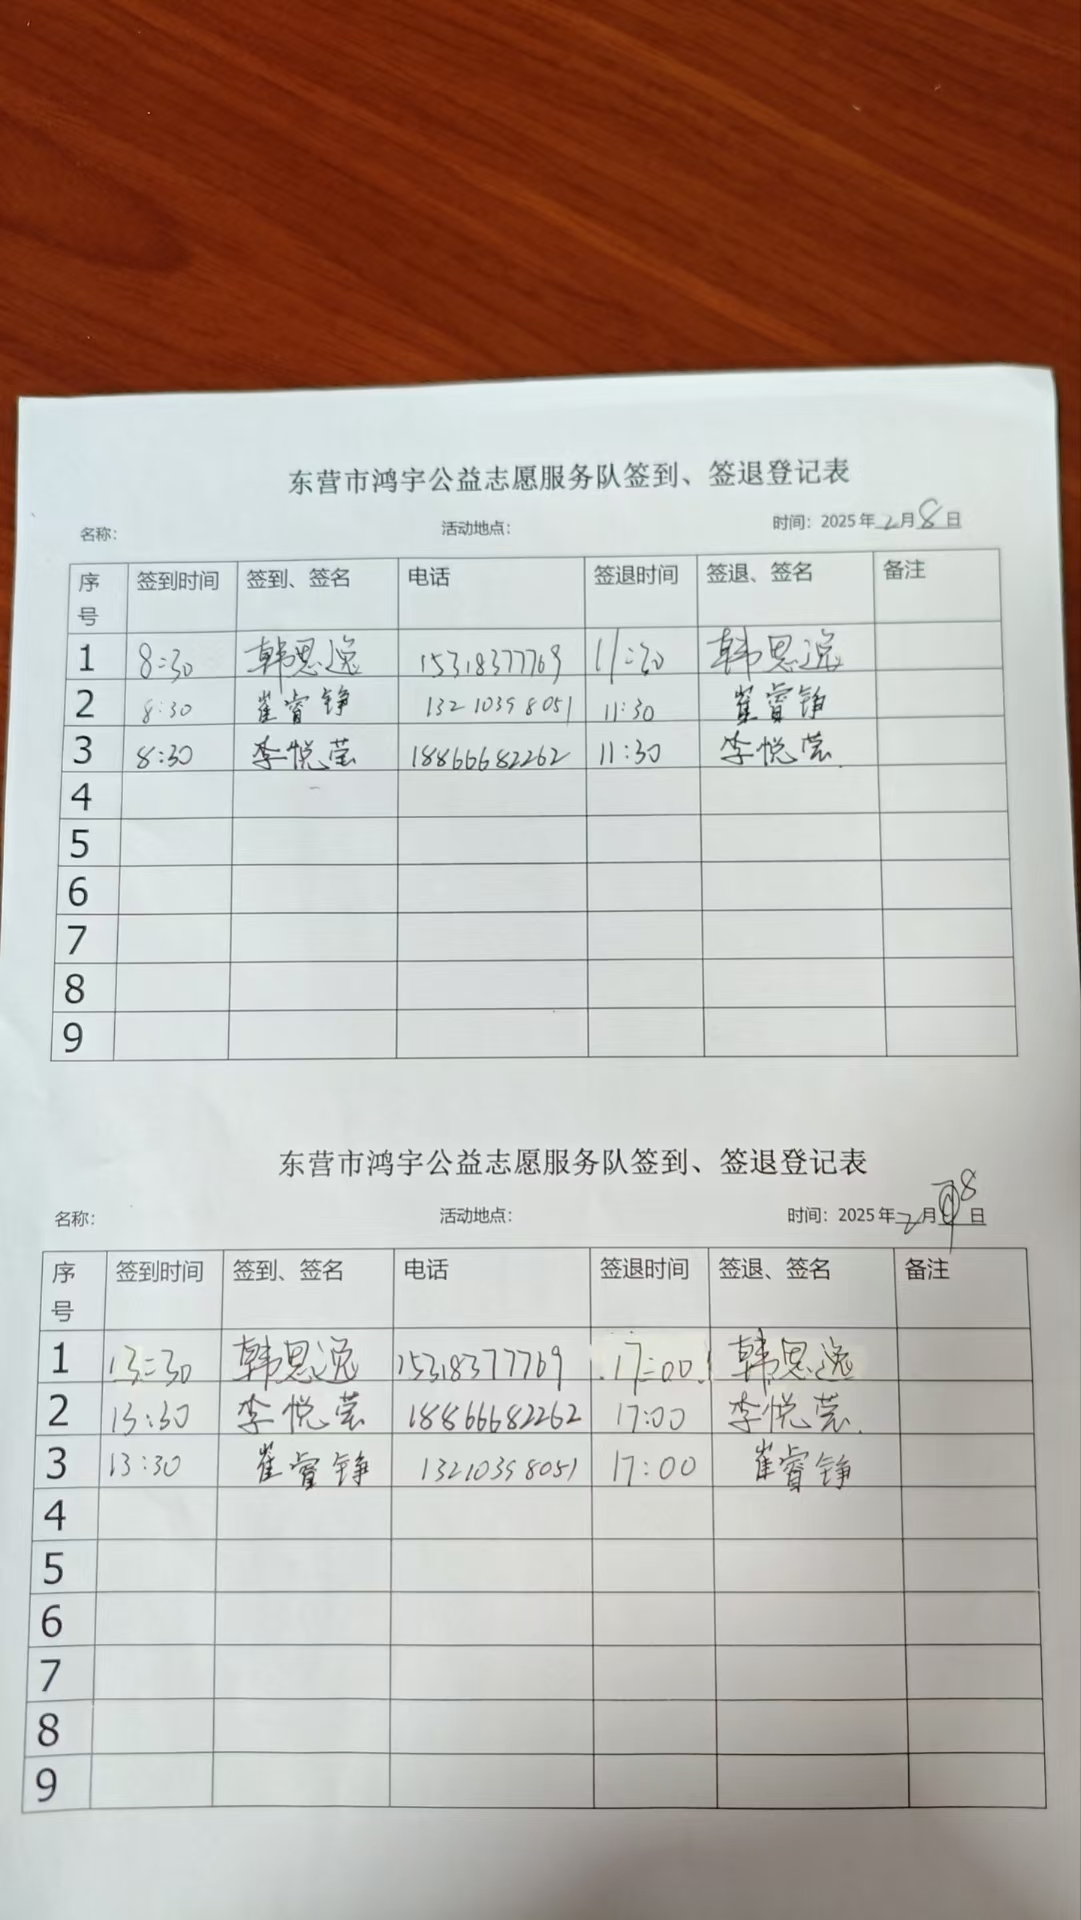 东营市鸿宇公益志愿服务队签到、签退登记表
名称： 活动地点： 时间：2025年2月8日
序号 签到时间 签到、签名 电话 签退时间 签退、签名 备注
1 8:30 韩思逸 15318377769 11:30 韩思逸
2 8:30 崔睿铮 13210398051 11:30 崔睿铮
3 8:30 李悦莹 18866682262 11:30 李悦莹
4
5
6
7
8
9
东营市鸿宇公益志愿服务队签到、签退登记表
名称： 活动地点： 时间：2025年2月8日
序号 签到时间 签到、签名 电话 签退时间 签退、签名 备注
1 13:30 韩思逸 15318377769 17:00 韩思逸
2 13:30 李悦莹 18866682262 17:00 李悦莹
3 13:30 崔睿铮 13210398051 17:00 崔睿铮
4
5
6
7
8
9